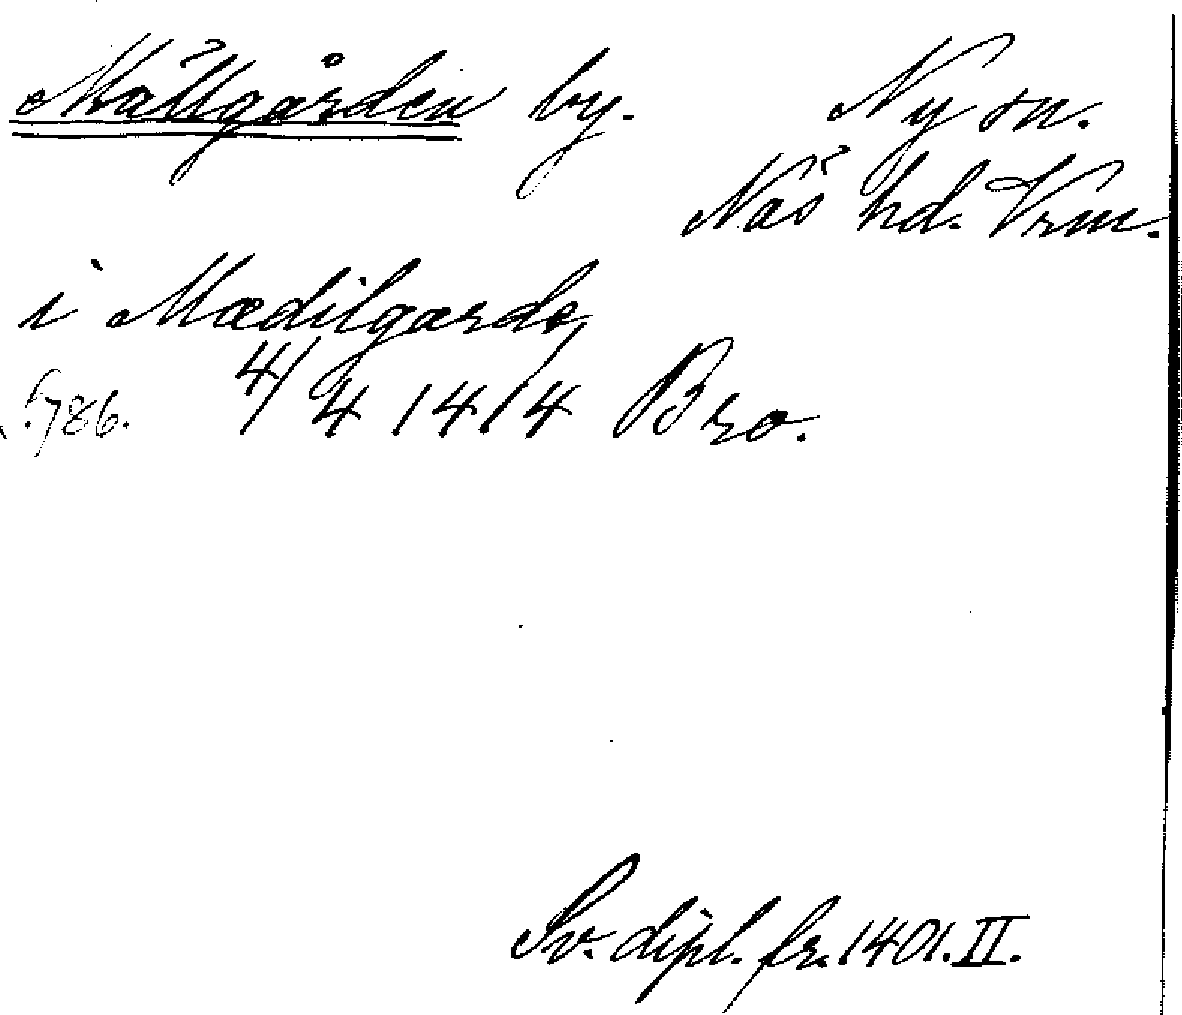 Mällgården by. Ny sn.
Näs hd. Vrm.
i Mædilgarde,
s. 786. 4/4 1414 Bro.
Sv. dipl. fr. 1401. II.